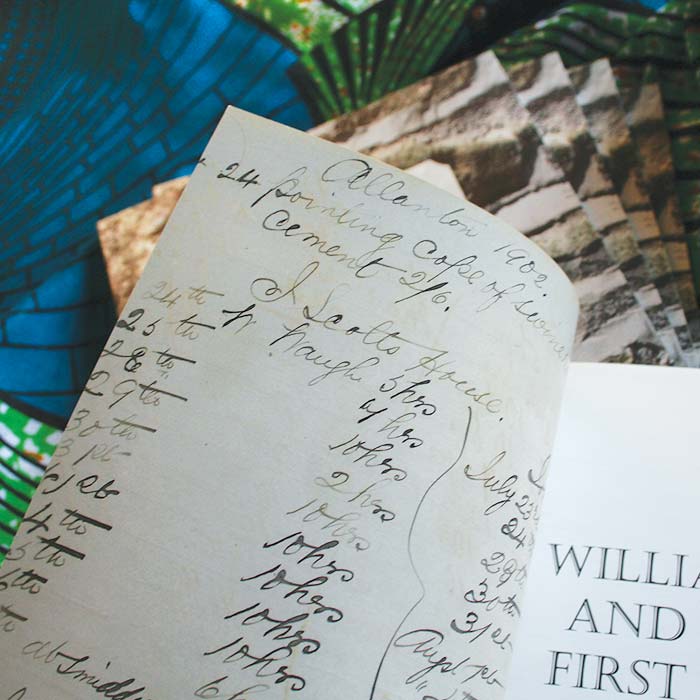 Allanton 1902.
24 pointing cope of swines
cement 2/6.
J Scotts House.
24th W. Waugh 5hrs
25th hrs
28th 10hrs
29th 2 hrs
30th 10hrs
31st 10hrs
1st 10hrs
4th 10hrs
5th 10hrs
6th
at Smiddy
July 23rd
24
29th
30th
31st
Augt 1st
WILLIA
AND
FIRST